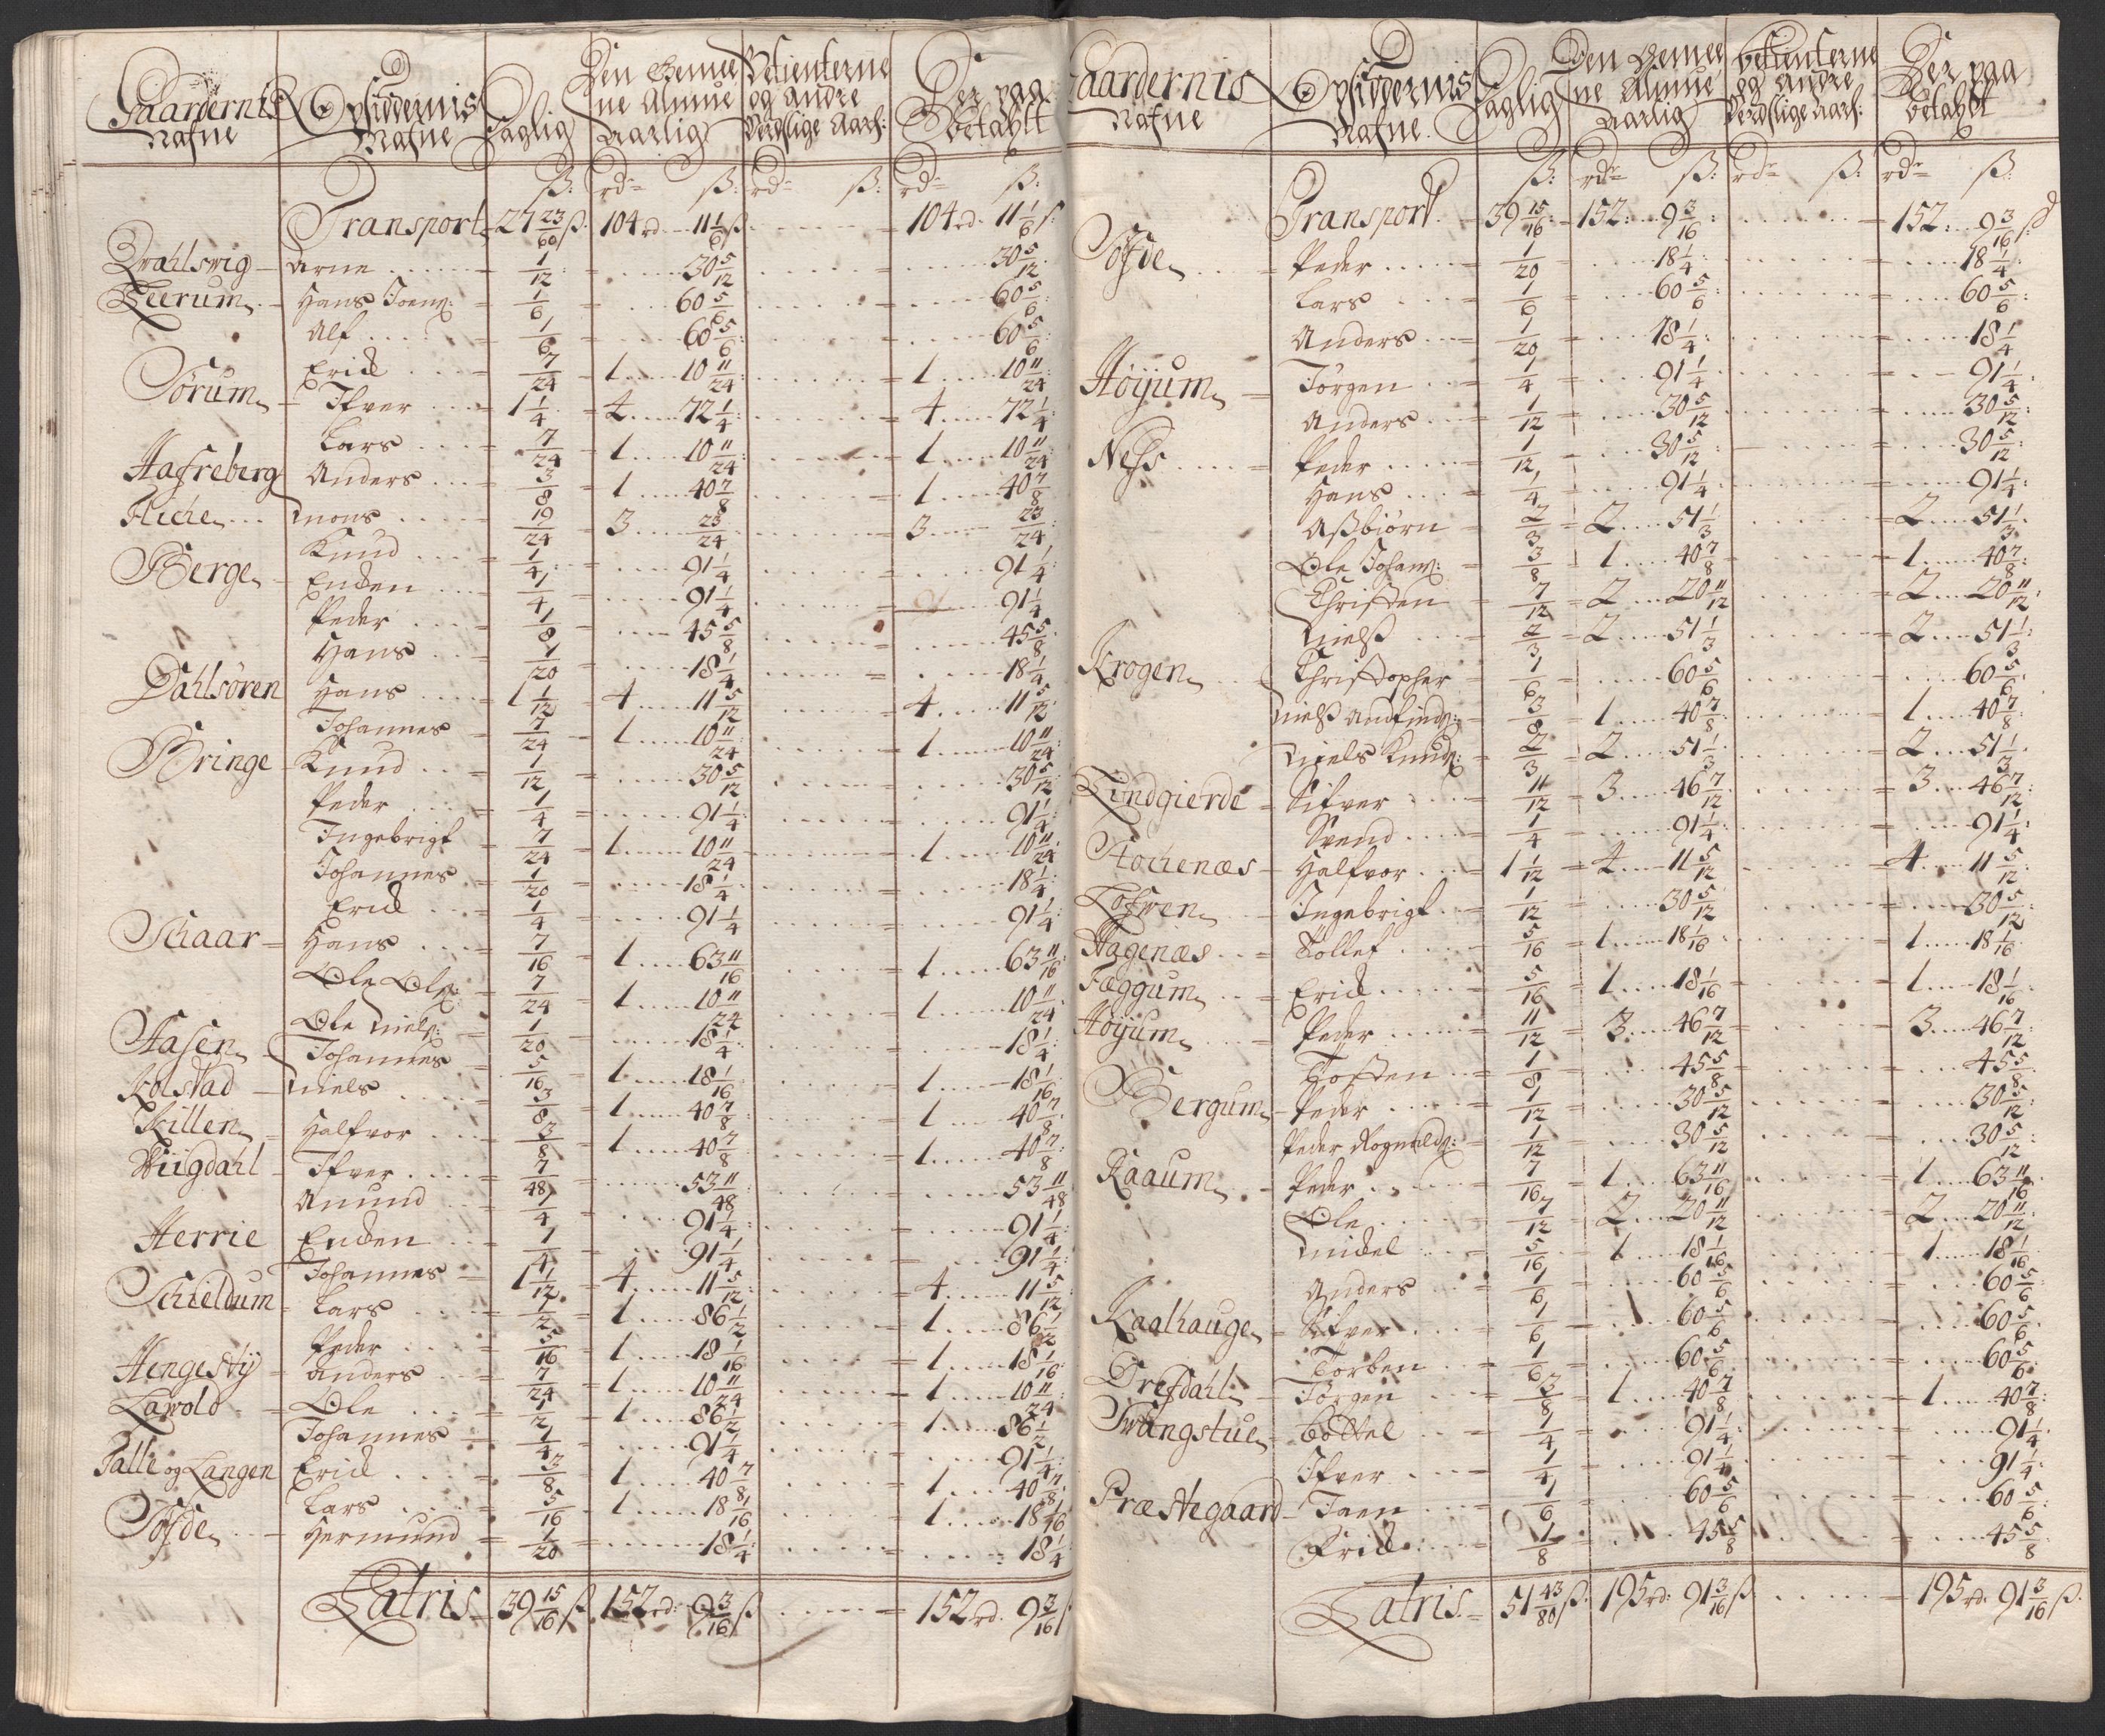 Gaardernis Nafne | Opsiddernis Nafne | Daglig | Den Gemene Almue Aarlig | Betienterne og Andre Verdslige Aarl: | Der paa betahlt
ß: | rdr ß: | rdr ß: | rdr ß:
Transport 27 23/60 ß. 104 rd 11 1/6 ß 104 rd. 11 1/6 ß:
Qvahlswig Arne 1/12 30 5/12 30 5/12
Leerum Hans Joens: 1/6 60 5/6 60 5/6
Alf 1/6 60 5/6 60 5/6
Sörum Erick 7/24 1 10 11/24 1 10 11/24
Ifver 1 1/4 4 72 1/4 4 72 1/4
Lars 7/24 1 10 11/24 1 10 11/24
Hafreberg Anders 3/8 1 40 7/8 1 40 7/8
Fliche Mons 19/24 3 23/24 3 23/24
Berge Knud 1/4 91 1/4 91 1/4
Enden 1/4 91 1/4 91 1/4
Peder 1/8 45 5/8 45 5/8
Hans 1/20 18 1/4 18 1/4
Dahlsören Hans 1 1/12 4 11 5/12 4 11 5/12
Johannes 7/24 1 10 11/24 1 10 11/24
Bringe Knud 1/12 30 5/12 30 5/12
Peder 1/4 91 1/4 91 1/4
Ingebrigt 7/24 1 10 11/24 1 10 11/24
Johannes 1/20 18 1/4 18 1/4
Erick 1/4 91 1/4 91 1/4
Schaar Hans 7/16 1 63 11/16 1 63 11/16
Ole Ols: 7/24 1 10 11/24 1 10 11/24
Ole Niels: 1/20 18 1/4 18 1/4
Aasen Johannes 5/16 1 18 1/16 1 18 1/16
Kolstad Niels 3/8 1 40 7/8 1 40 7/8
Killen Halfvor 3/8 1 40 7/8 1 40 7/8
Wiigdahl Ifver 7/48 53 11/48 53 11/48
Amund 1/4 91 1/4 91 1/4
Herrie Enden 1/4 91 1/4 91 1/4
Johannes 1 1/12 4 11 5/12 4 11 5/12
Schieldum Lars 1/2 1 86 1/2 1 86 1/2
Peder 5/16 1 18 1/16 1 18 1/16
Hengestÿ Anders 7/24 1 10 11/24 1 10 11/24
Lawold Ole 1/2 1 86 1/2 1 86 1/2
Johannes 1/4 91 1/4 91 1/4
Falle og Langen Erick 3/8 1 40 7/8 1 40 7/8
Lars 5/16 1 18 1/16 1 18 1/16
Söfde Hermund 1/20 18 1/4 18 1/4
Latris 39 15/16 ß 152 rd: 9 3/16 ß 152 rd. 9 3/16 ß
Gaardernis Nafne | Opsiddernis Nafne. | Daglig | Den Gemene Almue Aarlig | Betienterne og Andre Verdslige Aarl: | Der paa betahlt
ß: | rdr ß: | rdr ß: | rdr ß:
Transport 39 15/16 152: 9 3/16 152: 9 3/16 ß
Söfde Peder 1/20 18 1/4 18 1/4
Lars 1/6 60 5/6 60 5/6
Anders 1/20 18 1/4 18 1/4
Höÿum Jörgen 1/4 91 1/4 91 1/4
Anders 1/12 30 5/12 30 5/12
Ness Peder 1/12 30 5/12 30 5/12
Hans 1/4 91 1/4 91 1/4
Aßbiörn 2/3 2 51 1/3 2 51 1/3
Ole Johans: 3/8 1 40 7/8 1 40 7/8
Christen 7/12 2 20 11/12 2 20 11/12
Nielß 2/3 2 51 1/3 2 51 1/3
Krogen Christopher 1/6 60 5/6 60 5/6
Nielß Andfinds: 3/8 1 40 7/8 1 40 7/8
Niels Knuds: 2/3 2 51 1/3 2 51 1/3
Lundgierde Sifver 11/12 3 46 7/12 3 46 7/12
Svend 1/4 91 1/4 91 1/4
Hochenæs Halfvor 1 1/12 4 11 5/12 4 11 5/12
Lofwen Ingebrigt 1/12 30 5/12 30 5/12
Hagenæs Tollef 5/16 1 18 1/16 1 18 1/16
Fæggum Erick 5/16 1 18 1/16 1 18 1/16
Höÿum Peder 11/12 3 46 7/12 3 46 7/12
Tosten 1/8 45 5/8 45 5/8
Bergum Peder 1/12 30 5/12 30 5/12
Peder Rognalds: 1/12 30 5/12 30 5/12
Raaum Peder 7/16 1 63 11/16 1 63 11/16
Ole 7/12 2 20 11/12 2 20 11/12
Mickel 5/16 1 18 1/16 1 18 1/16
Anders 1/6 60 5/6 60 5/6
Kaalhauge Sifver 1/6 60 5/6 60 5/6
Torben 1/6 60 5/6 60 5/6
Drefdahl Jörgen 3/8 1 40 7/8 1 40 7/8
Swangstue Bottel 1/4 91 1/4 91 1/4
Ifver 1/4 91 1/4 91 1/4
Præstegaard Joen 1/6 60 5/6 60 5/6
Erick 1/8 45 5/8 45 5/8
Latris 51 43/80 ß. 195 rd: 91 3/16 ß. 195 rd. 91 3/16 ß.